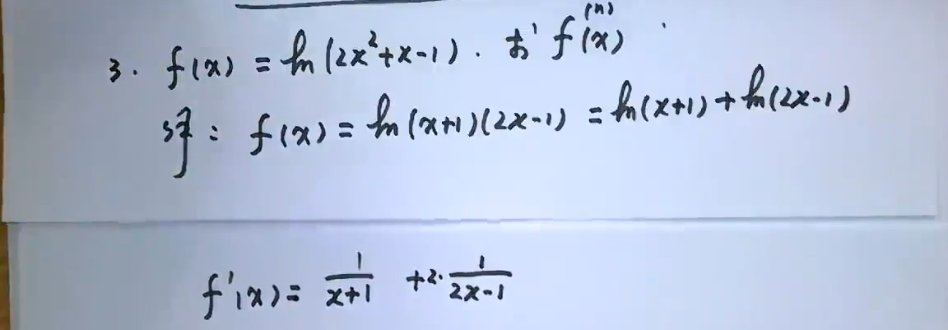 3. f(x) = ln(2x²+x-1). 求 f⁽ⁿ⁾(x)
解: f(x) = ln(x+1)(2x-1) = ln(x+1)+ln(2x-1)
f'(x) = 1/(x+1) +2·1/(2x-1)